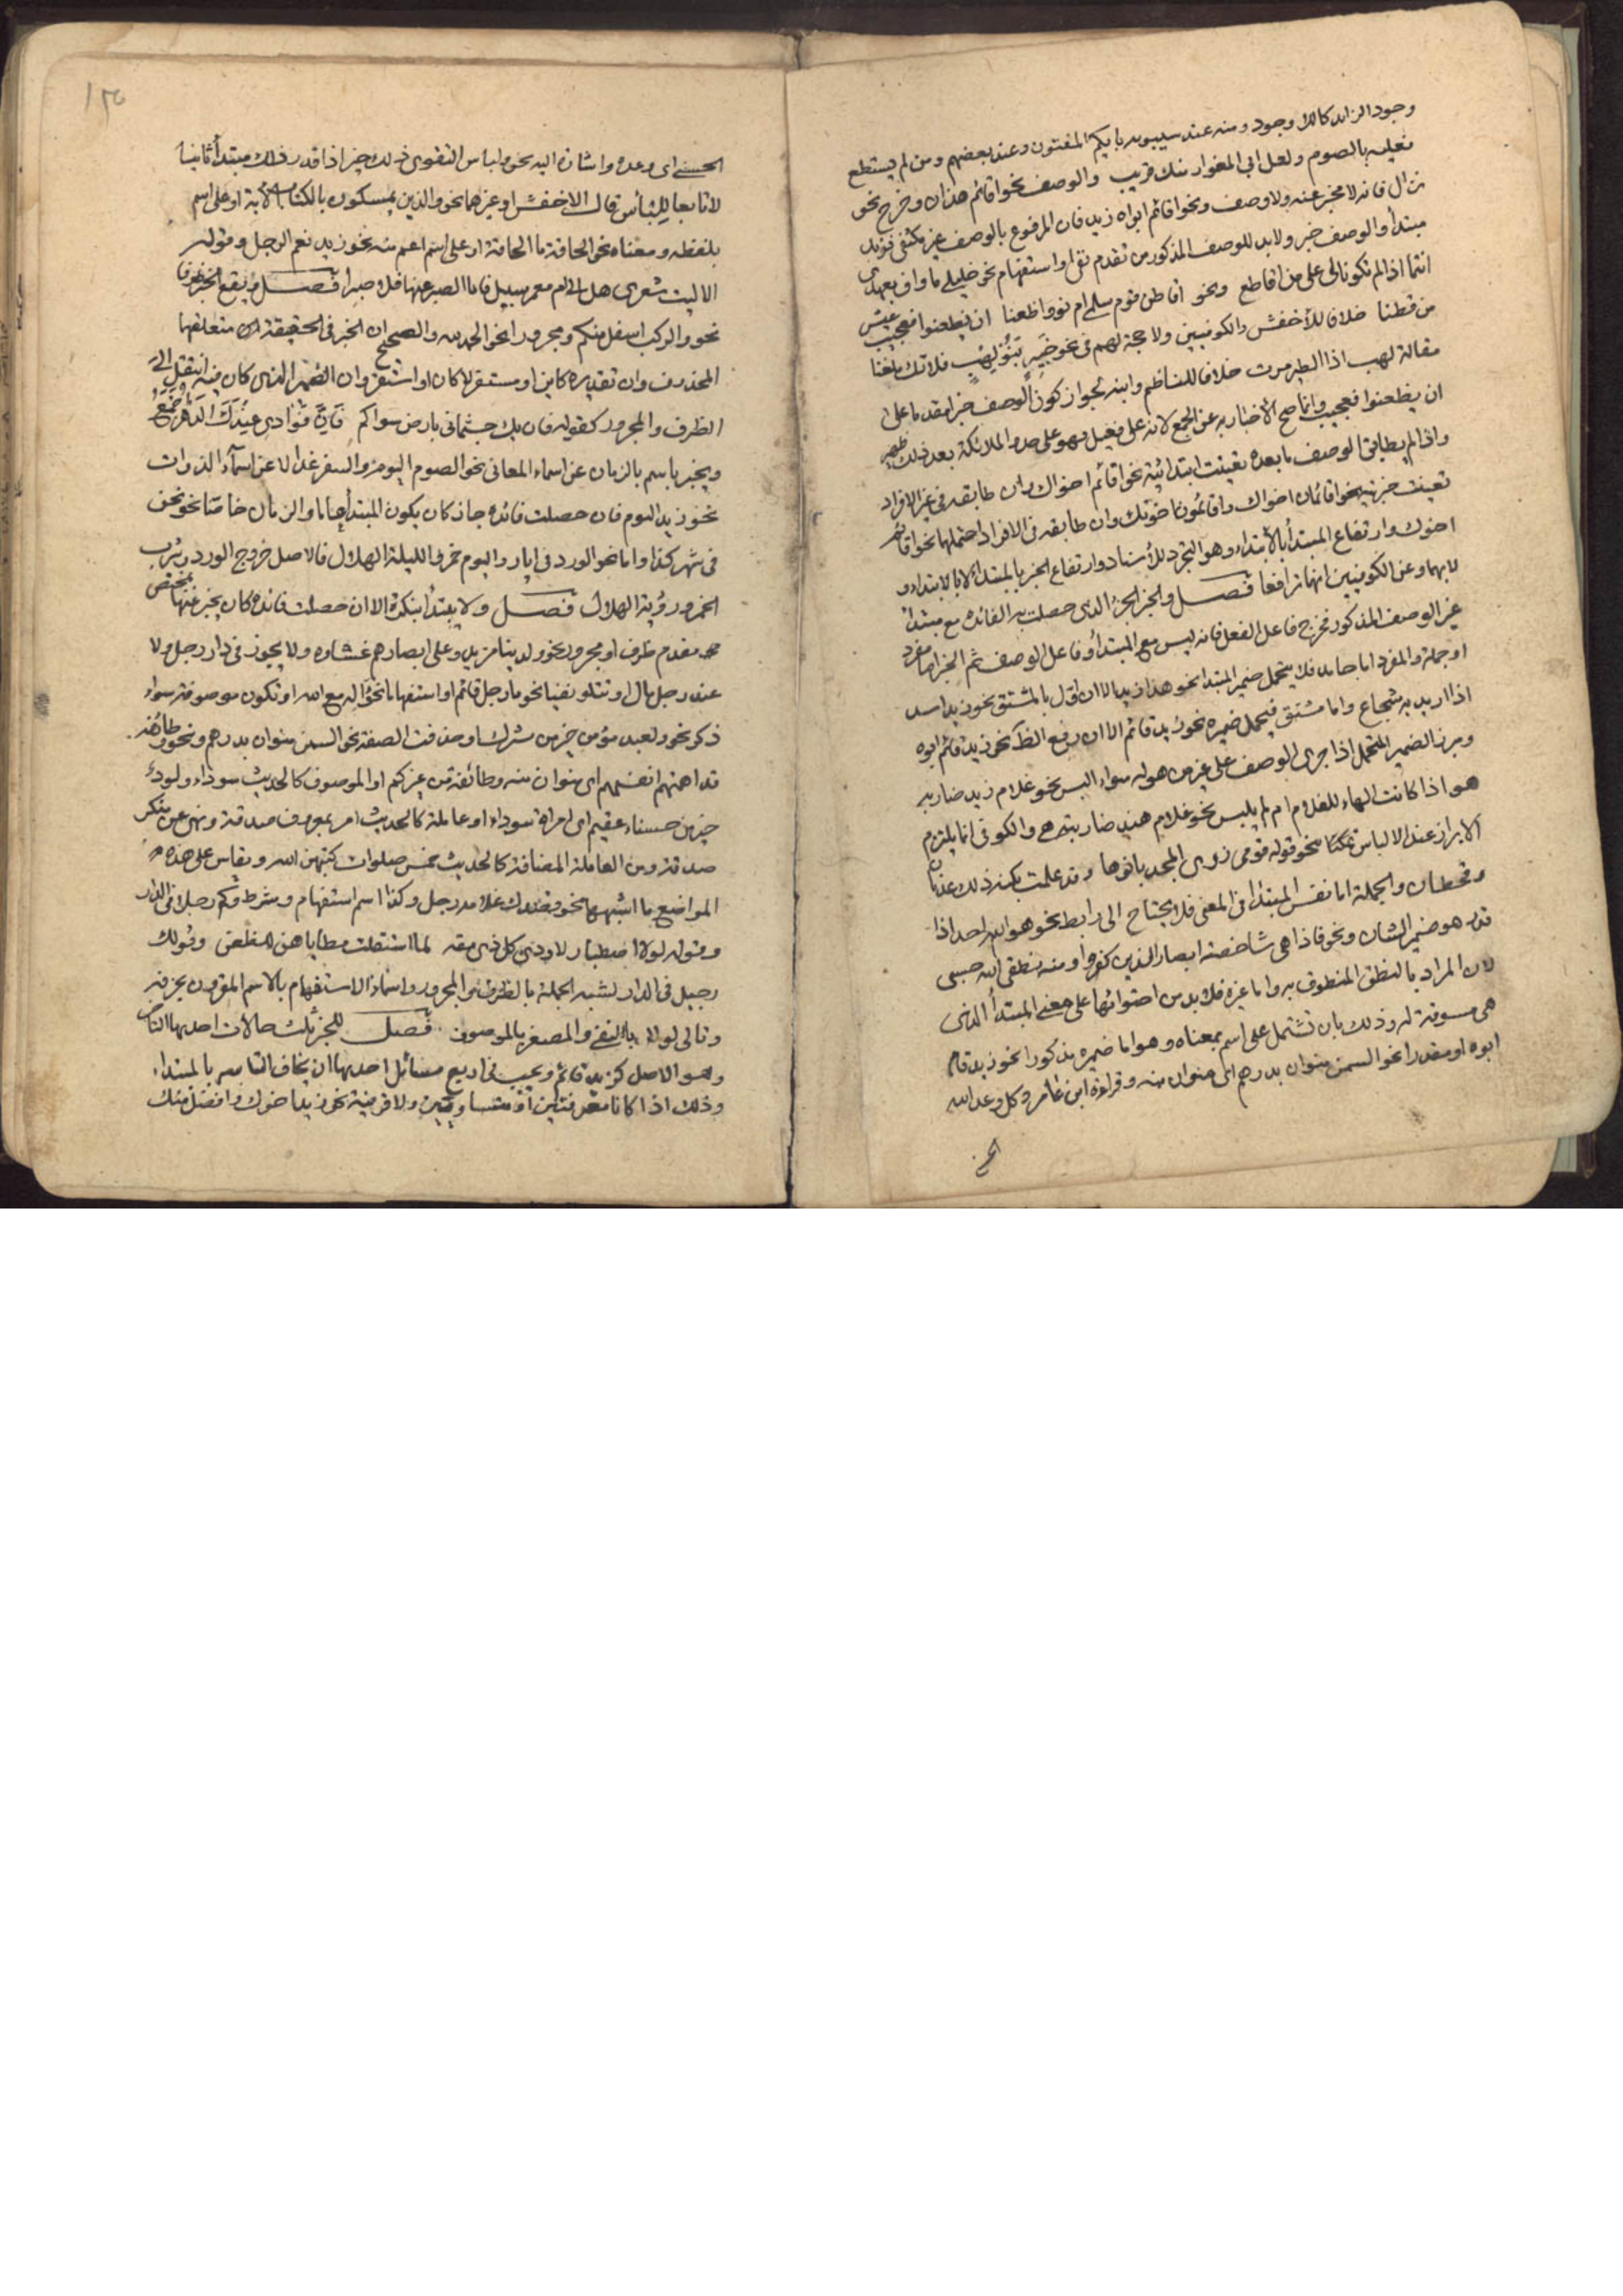 وجود الزائد كالا وجود ومنه عند سيبويه بايكم المفتون وعند بعضهم ومن لم يستطع
فعليه بالصوم ولعل ابي المغوار منك قريب والوصف نحو اقائم هذان وخرج نحو
نزال فانه لا مخبر عنه ولا وصف ونحو اقائم ابواه زيد فان المرفوع بالوصف غير مكتفى فزيد
مبتدأ والوصف خبر ولا بد للوصف المذكور من تقدم نفي او استفهام نحو خليلي ما واف بعهدي
انتما اذا لم تكونا لي على من اقاطع ونحو اقاطن قوم سلمى ام نووا ظعنا ان يظعنوا فعجيب عيش
من قطنا خلافا للأخفش والكوفيين ولا حجة لهم في نحو خبير بنو لهب فلا تك ملغيا
مقالة لهب اذا الطير مرت خلافا للناظم وابنه لجواز كون الوصف خبرا مقدما على
ان يظعنوا فعجيب وانما صح الاخبار به عن الجمع لانه على فعيل فهو على حد والملائكة بعد ذلك ظهير
واذا لم يطابق الوصف ما بعده تعينت ابتدائيته نحو اقائم اخواك وان طابقه في غير الافراد
تعينت خبريته نحو اقائمان اخواك واقائمون اخوتك وان طابقه في الافراد احتملهما نحو اقائم
اخوك وارتفاع المبتدأ بالابتداء وهو التجرد للأسناد وارتفاع الخبر بالمبتدأ لا بالابتداء و
لا بهما وعن الكوفيين انهما ترافعا فصل والخبر الجزء الذي حصلت به الفائدة مع مبتدأ
غير الوصف المذكور فخرج فاعل الفعل فانه ليس مع المبتدأ وفاعل الوصف ثم الخبر اما مفرد
او جملة والمفرد اما جامد فلا يتحمل ضمير المبتدا نحو هذا زيد الا ان اول بالمشتق نحو زيد اسد
اذا اريد به شجاع واما مشتق فيتحمل ضميره نحو زيد قائم الا ان رفع الظاهر نحو زيد قائم ابوه
ويبرز الضمير المتحمل اذا جرى الوصف على غير من هو له سواء البس نحو غلام زيد ضاربه
هو اذا كانت الهاء للغلام ام لم يلبس نحو غلام هند ضاربته هي والكوفي انما يلتزم
الابراز عند الالباس تمسكا بنحو قوله قومى ذرى المجد بانوها وقد علمت بكنه ذلك عدنان
وقحطان والجملة اما نفس المبتدأ في المعنى فلا يحتاج الى رابط نحو هو الله احد اذا
قدر هو ضمير الشان ونحو فاذا هي شاخصة ابصار الذين كفروا ومنه نطقى الله حسبى
لان المراد بالنطق المنطوق به واما غيره فلا بد من احتوائها على معنى المبتدأ الذي
هي مسوقة له وذلك بان تشتمل على اسم بمعناه وهو اما ضميره مذكورا نحو زيد قام
ابوه او مقدرا نحو السمن منوان بدرهم اى منوان منه وقراءة ابن عامر وكل وعد الله
الحسنى اى وعده واشارة اليه نحو ولباس التقوى ذلك خير اذا قدر ذلك مبتدأ ثانيا
لا تابعا للباس قال الاخفش او غيرهما نحو والذين يمسكون بالكتاب الآية او على اسم
بلفظه ومعناه نحو الحاقة ما الحاقة او على اسم اعم منه نحو زيد نعم الرجل وقوله
الا ليت شعرى هل الى ام معمر سبيل فاما الصبر عنها فلا صبرا فصل ويقع الخبر ظرفا
نحو والركب اسفل منكم ومجرورا نحو الحمد لله والصحيح ان الخبر في الحقيقة متعلقهما
المحذوف وان تقديره كاين او مستقر لا كان او استقر وان الضمير الذى كان فيه انتقل الى
الظرف والمجرور كقوله فان يك جثمانى بارض سواكم فان فؤادى عندك الدهر اجمع
ويخبر باسم بالزمان عن اسماء المعانى نحو الصوم اليوم والسفر غدا لا عن اسماء الذوات
نحو زيد اليوم فان حصلت فائدة جاز كان يكون المبتدأ عاما والزمان خاصا نحو نحن
فى شهر كذا واما نحو الورد فى ايار واليوم خمر والليلة الهلال فالاصل خروج الورد وشرب
الخمر ورؤية الهلال فصل ولا يبتدأ بنكرة الا ان حصلت فائدة كان يخبر عنها بمختص
مقدم ظرف او مجرور نحو ولدينا مزيد وعلى ابصارهم غشاوة ولا يجوز فى دار رجل ولا
عند رجل مال او تتلو نفيا نحو ما رجل قائم او استفهاما نحو أاله مع الله او تكون موصوفة سواء
ذكر نحو ولعبد مؤمن خير من مشرك او حذفت الصفة نحو السمن منوان بدرهم ونحو وطائفة
قد اهمتهم انفسهم اى منوان منه وطائفة من غيركم او الموصوف كالحديث سوداء ولود
خير من حسناء عقيم اى امرأة سوداء او عاملة كالحديث امر بمعروف صدقة ونهى عن منكر
صدقة ومن العاملة المضافة كالحديث خمس صلوات كتبهن الله ويقاس على هذه
المواضع ما اشبهها نحو قصدك غلامه رجل وكذا اسم استفهام وشرط وكم رجلا فى الدار
وقوله لولا اصطبار لاودى كل ذى مقة لما استقلت مطاياهن للظعن وقولك
رجيل فى الدار لشبه الجملة بالظرف والمجرور واسماء الاستفهام بالاسم المقرون بحرفه
وتالى لولا بتالى النفى والمصغر بالموصوف فصل للخبر ثلث حالات احديها التأخر
وهو الاصل كزيد قائم ويجب فى اربع مسائل احديها ان يخاف التباسه بالمبتداء
وذلك اذا كانا معرفتين او متساويتين ولا قرينة نحو زيد اخوك وافضل منك